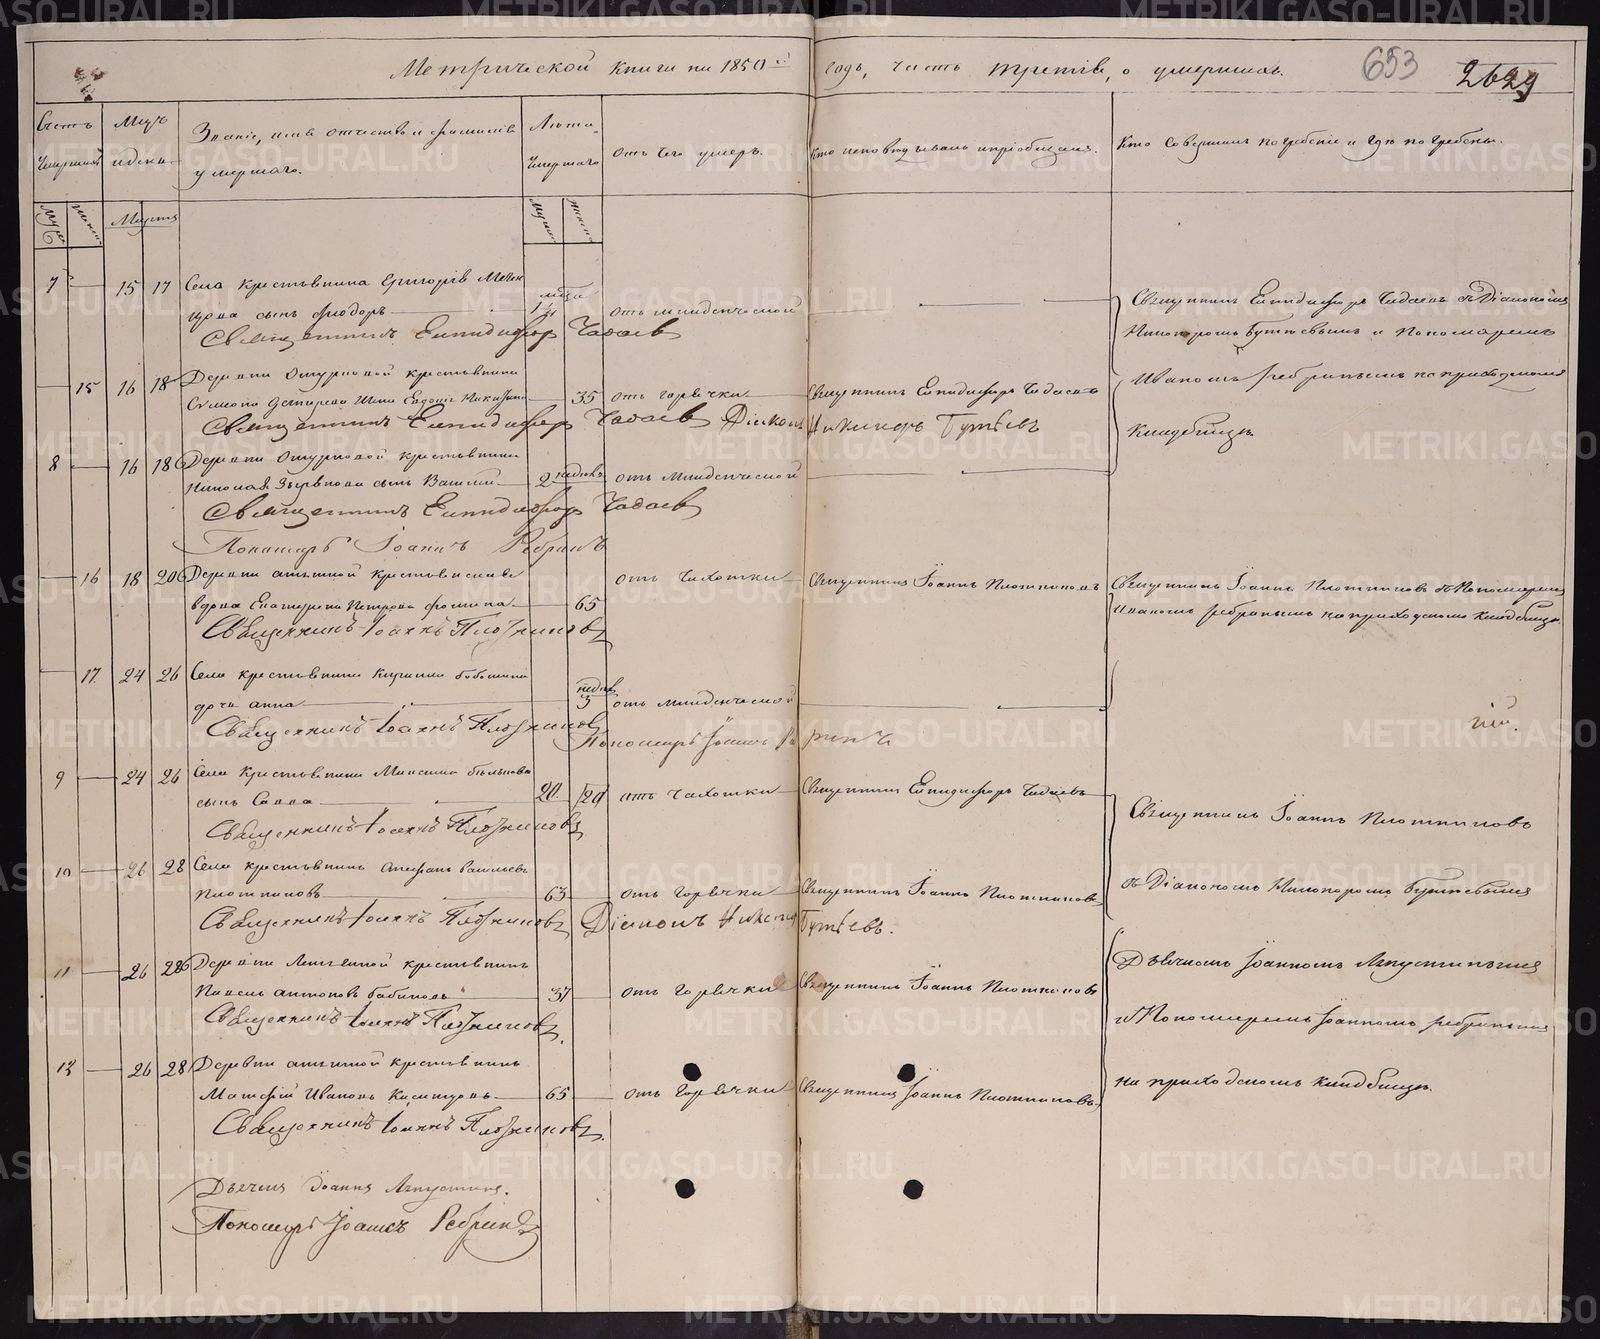 Метрической книги на 1850й годъ, часть третія, о умершихъ.
653
2629
Счетъ умершихъ
Мѣсяцъ и день
Званіе, имя отчество и фамилія умершаго.
Лѣта умершаго
Отъ чего умеръ.
Кто исповѣдывалъ и пріобщалъ.
Кто совершалъ погребеніе и гдѣ погребены.
Марта
7 15 17 Села крестьянина Григорія
сынъ Ѳеодоръ отъ младенческой
Священникъ Епидифоръ Чадаевъ
Священникъ Епидифоръ Чадаевъ съ Діакономъ
Никифоромъ Бутаевымъ и Пономаремъ
Иваномъ Ребринымъ на приходскомъ
кладбищѣ
15 16 18 Деревни крестьянина
жена Евдокія 35 отъ горячки Священникъ Епидифоръ Чадаевъ
Священникъ Епидифоръ Чадаевъ Діаконъ Никифоръ Бутаевъ
8 16 18 Деревни крестьянина
Николая Зырянова сынъ Василій 2 недѣль отъ младенческой
Священникъ Епидифоръ Чадаевъ
Пономарь Іоаннъ Ребринъ
16 18 20 Деревни крестьянская отъ чахотки Священникъ Іоаннъ Плотниковъ
вдова Екатерина Петрова Фомина 65
Священникъ Іоаннъ Плотниковъ
Священникъ Іоаннъ Плотниковъ съ Пономаремъ
Иваномъ Ребринымъ на приходскомъ кладбищѣ
17 24 26 Села крестьянина Кирилла
дочь Анна 3 недѣль отъ младенческой
Священникъ Іоаннъ Плотниковъ
Пономарь Іоаннъ Ребринъ
9 24 26 Села крестьянина Максима
сынъ Савва 20 отъ чахотки Священникъ Епидифоръ Чадаевъ
Священникъ Іоаннъ Плотниковъ
Священникъ Іоаннъ Плотниковъ
съ Діакономъ Никифоромъ Бутаевымъ
10 26 28 Села крестьянинъ Стефанъ Васильевъ
Плотниковъ 63 отъ горячки Священникъ Іоаннъ Плотниковъ
Священникъ Іоаннъ Плотниковъ Діаконъ Никифоръ Бутаевъ.
11 26 28 Деревни крестьянинъ
Павелъ Антоновъ Бабиновъ 37 отъ горячки Священникъ Іоаннъ Плотниковъ
Священникъ Іоаннъ Плотниковъ
Дьячкомъ Іоанномъ
и Пономаремъ Іоанномъ Ребринымъ
на приходскомъ кладбищѣ.
12 26 28 Деревни крестьянинъ
Матфій Ивановъ 65 отъ горячки Священникъ Іоаннъ Плотниковъ
Священникъ Іоаннъ Плотниковъ
Дьячекъ Іоаннъ
Пономарь Іоаннъ Ребринъ
METRIKI.GASO-URAL.RU